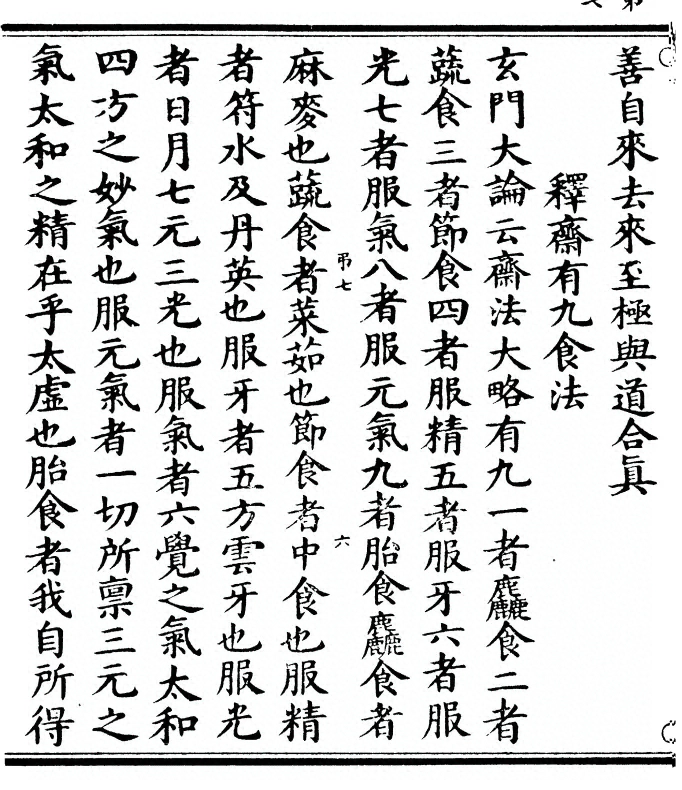 善自來去來至極與道合真
釋齋有九食法
玄門大論云齋法大略有九一者麤食二者
蔬食三者節食四者服精五者服牙六者服
光七者服氣八者服元氣九者胎食麤食者
弔七 六
麻麥也蔬食者菜茹也節食者中食也服精
者符水及丹英也服牙者五方雲牙也服光
者日月七元三光也服氣者六覺之氣太和
四方之妙氣也服元氣者一切所稟三元之
氣太和之精在乎太虛也胎食者我自所得